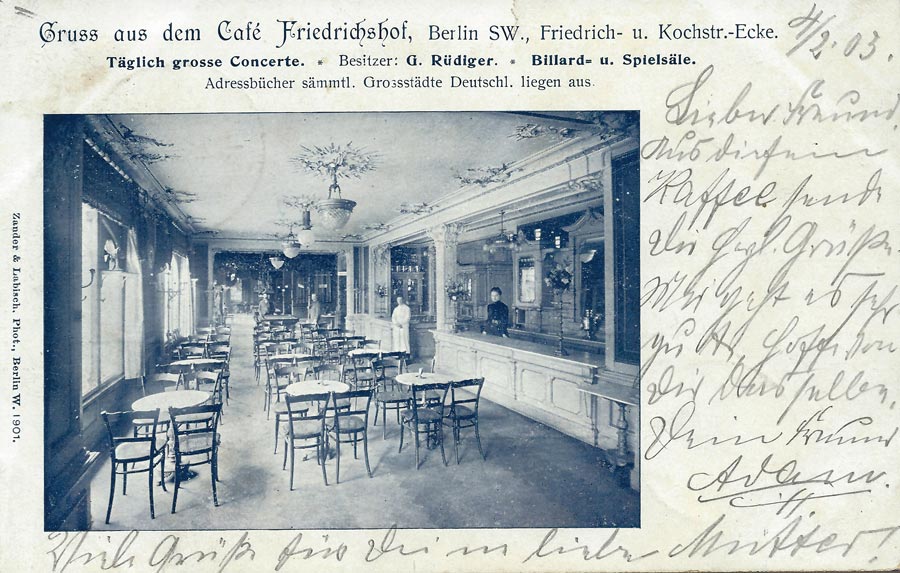 Gruss aus dem Café Friedrichshof, Berlin SW., Friedrich- u. Kochstr.-Ecke.
Täglich grosse Concerte. * Besitzer: G. Rüdiger. * Billard- u. Spielsäle.
Adressbücher sämmtl. Grossstädte Deutschl. liegen aus.
4/2.03.
Lieber Freund.
Aus diesem
Kaffee sende
Dir herzl. Grüße.
Mir geht es sehr
gut, hoffe von
Dir dasselbe.
Dein Freund
Adam.
Viele Grüße für Deine liebe Mutter!
Zander & Labisch, Phot., Berlin W. 1901.